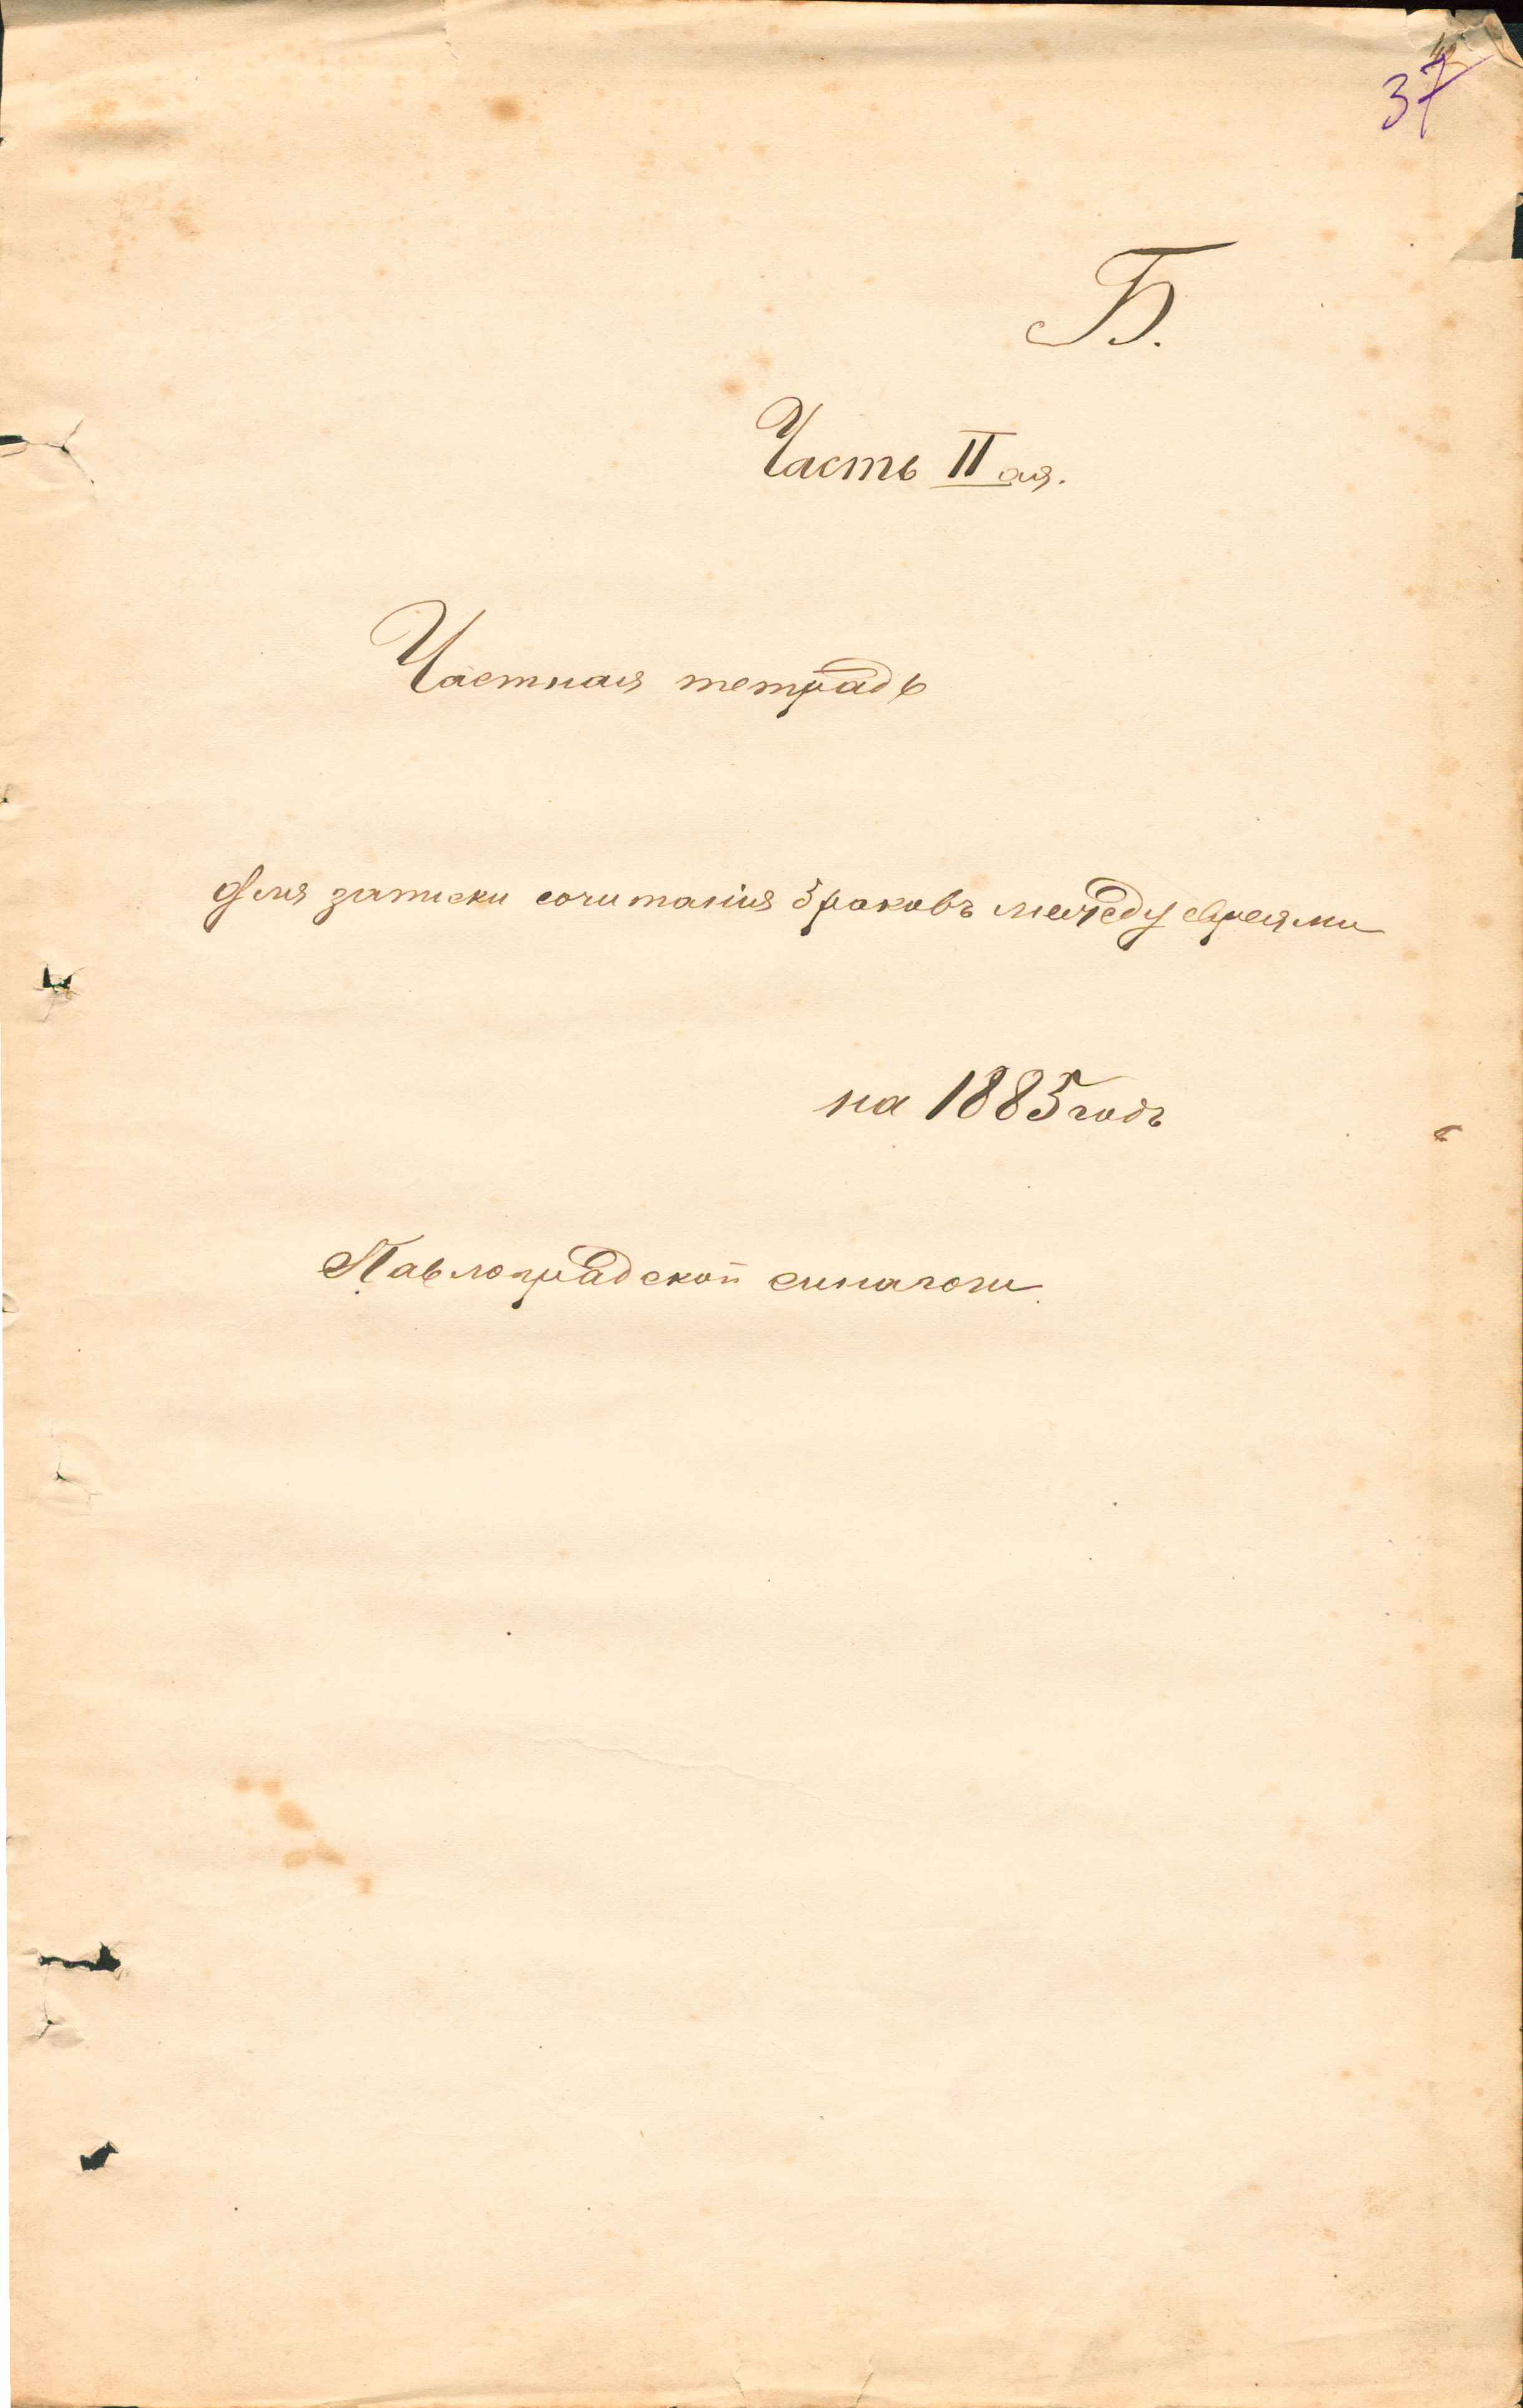 37
Б.
Часть II ая.
Частная тетрадь
Для записки сочитанія браковъ между евреями
на 1885 годъ
Павлоградской синагоги.